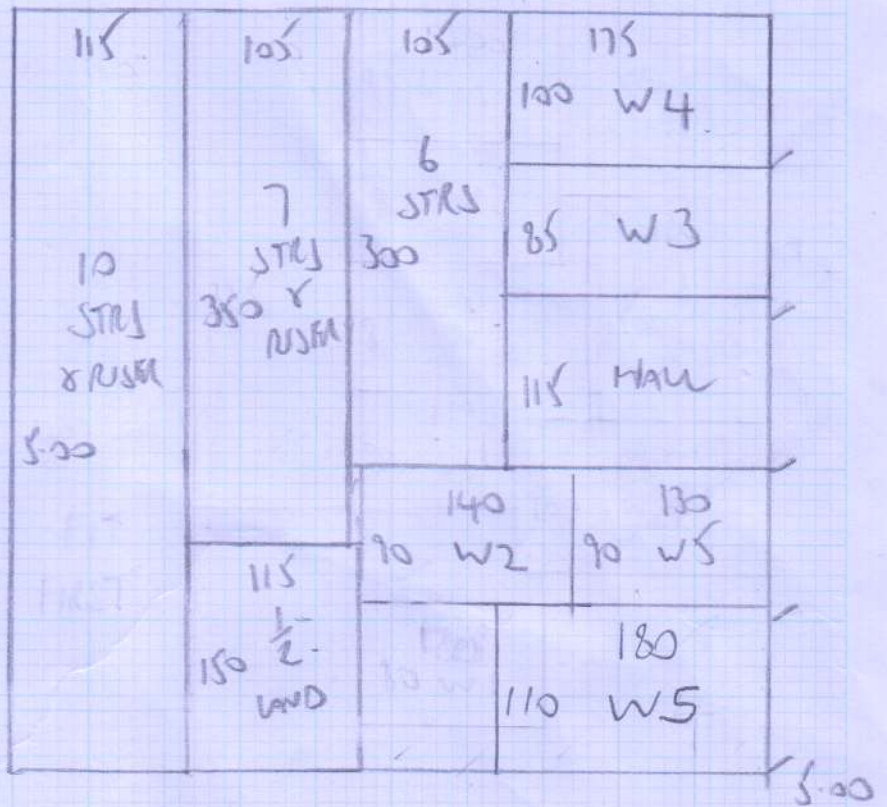 115
10
STRS
& RISER
5.00
105
7
STRS
350 &
RISER
115
150 1/2
LAND
105
6
STRS
300
175
100 W4
85 W3
115 HALL
140
90 W2
130
90 W5
180
110 W5
5.00